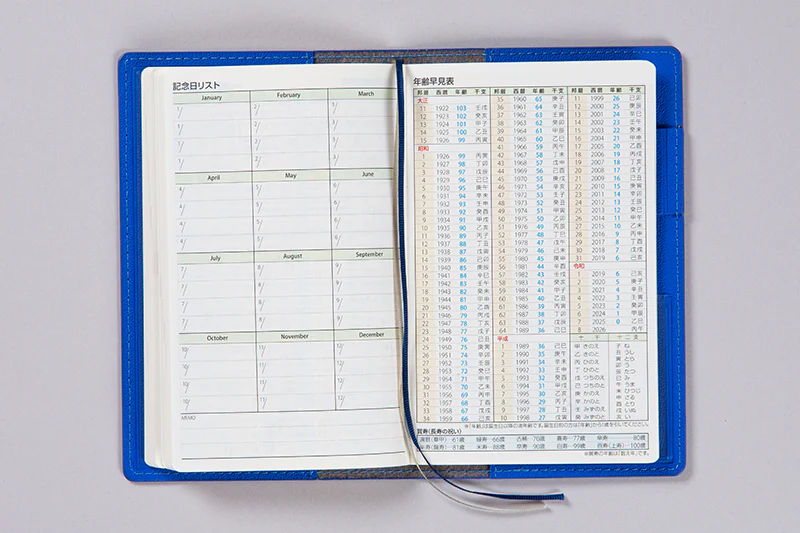 記念日リスト
January
February
March
1/
1/
1/
1/
2/
2/
2/
2/
3/
3/
3/
3/
April
May
June
4/
4/
4/
4/
5/
5/
5/
5/
July
August
September
7/
7/
7/
7/
8/
8/
8/
8/
9/
9/
9/
9/
October
November
December
10/
10/
10/
10/
11/
11/
11/
11/
12/
12/
12/
12/
MEMO
年齢早見表
邦暦 西暦 年齢 干支
大正
11 1922 103 壬戌
12 1923 102 癸亥
13 1924 101 甲子
14 1925 100 乙丑
15 1926 99 丙寅
昭和
1 1926 99 丙寅
2 1927 98 丁卯
3 1928 97 戊辰
4 1929 96 己巳
5 1930 95 庚午
6 1931 94 辛未
7 1932 93 壬申
8 1933 92 癸酉
9 1934 91 甲戌
10 1935 90 乙亥
11 1936 89 丙子
12 1937 88 丁丑
13 1938 87 戊寅
14 1939 86 己卯
15 1940 85 庚辰
16 1941 84 辛巳
17 1942 83 壬午
18 1943 82 癸未
19 1944 81 甲申
20 1945 80 乙酉
21 1946 79 丙戌
22 1947 78 丁亥
23 1948 77 戊子
24 1949 76 己丑
25 1950 75 庚寅
26 1951 74 辛卯
27 1952 73 壬辰
28 1953 72 癸巳
29 1954 71 甲午
30 1955 70 乙未
31 1956 69 丙申
32 1957 68 丁酉
33 1958 67 戊戌
34 1959 66 己亥
邦暦 西暦 年齢 干支
35 1960 65 庚子
36 1961 64 辛丑
37 1962 63 壬寅
38 1963 62 癸卯
39 1964 61 甲辰
40 1965 60 乙巳
41 1966 59 丙午
42 1967 58 丁未
43 1968 57 戊申
44 1969 56 己酉
45 1970 55 庚戌
46 1971 54 辛亥
47 1972 53 壬子
48 1973 52 癸丑
49 1974 51 甲寅
50 1975 50 乙卯
51 1976 49 丙辰
52 1977 48 丁巳
53 1978 47 戊午
54 1979 46 己未
55 1980 45 庚申
56 1981 44 辛酉
57 1982 43 壬戌
58 1983 42 癸亥
59 1984 41 甲子
60 1985 40 乙丑
61 1986 39 丙寅
62 1987 38 丁卯
63 1988 37 戊辰
64 1989 36 己巳
平成
1 1989 36 己巳
2 1990 35 庚午
3 1991 34 辛未
4 1992 33 壬申
5 1993 32 癸酉
6 1994 31 甲戌
7 1995 30 乙亥
8 1996 29 丙子
9 1997 28 丁丑
10 1998 27 戊寅
邦暦 西暦 年齢 干支
11 1999 26 己卯
12 2000 25 庚辰
13 2001 24 辛巳
14 2002 23 壬午
15 2003 22 癸未
16 2004 21 甲申
17 2005 20 乙酉
18 2006 19 丙戌
19 2007 18 丁亥
20 2008 17 戊子
21 2009 16 己丑
22 2010 15 庚寅
23 2011 14 辛卯
24 2012 13 壬辰
25 2013 12 癸巳
26 2014 11 甲午
27 2015 10 乙未
28 2016 9 丙申
29 2017 8 丁酉
30 2018 7 戊戌
31 2019 6 己亥
令和
1 2019 6 己亥
2 2020 5 庚子
3 2021 4 辛丑
4 2022 3 壬寅
5 2023 2 癸卯
6 2024 1 甲辰
7 2025 0 乙巳
8 2026 丙午
十干 十二支
甲 きのえ
乙 きのと
丙 ひのえ
丁 ひのと
戊 つちのえ
己 つちのと
庚 かのえ
辛 かのと
壬 みずのえ
癸 みずのと
子 ね
丑 うし
寅 とら
卯 う
辰 たつ
巳 み
午 うま
未 ひつじ
申 さる
酉 とり
戌 いぬ
亥 い
※「年齢」は誕生日以降の満年齢です。誕生日前の方は「年齢」から1歳を引いてください。
賀寿(長寿の祝い)
還暦(華甲)…61歳 緑寿…66歳 古稀…70歳 喜寿…77歳 傘寿……80歳
半寿(盤寿)…81歳 米寿…88歳 卒寿…90歳 白寿…99歳 百寿(上寿)…100歳
※賀寿の年齢は「数え年」です。